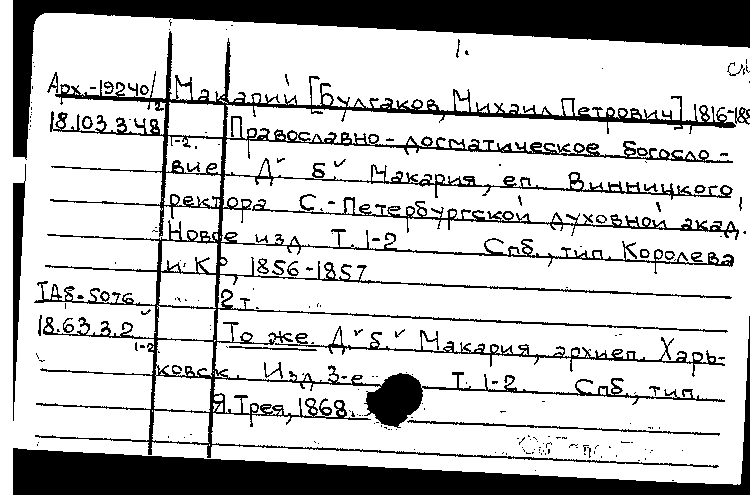 1.
Арх.-19240/2 Макарий [Булгаков, Михаил Петрович], 1816-188
18.103.3.48 Православно-догматическое богосло-
1-2.
вие. Д" б" Макария, еп. Винницкого,
ректора С.-Петербургской духовной акад.
Новое изд. Т. 1-2 Спб., тип. Королева
и К°, 1856-1857
IАб-5076 2 т.
18.63.3.2 То же. Д" б" Макария, архиеп. Харь-
1-2
ковск. Изд. 3-е Т. 1-2. Спб., тип.
Я. Трея, 1868.